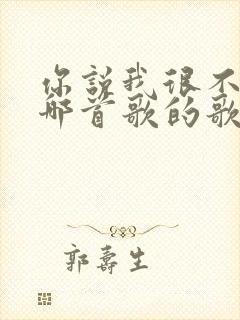 你說我很不
哪首歌的歌
郭壽生